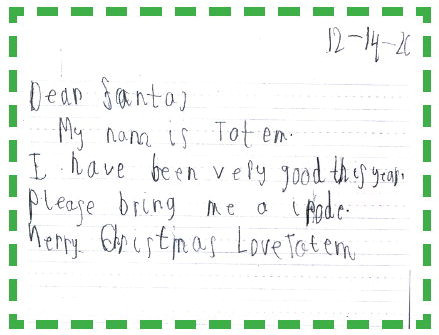 12-14-20
Dear Santa,
My nam is Totem.
I have been very good this year.
Please bring me a ipode.
Merry Christmas Love Totem